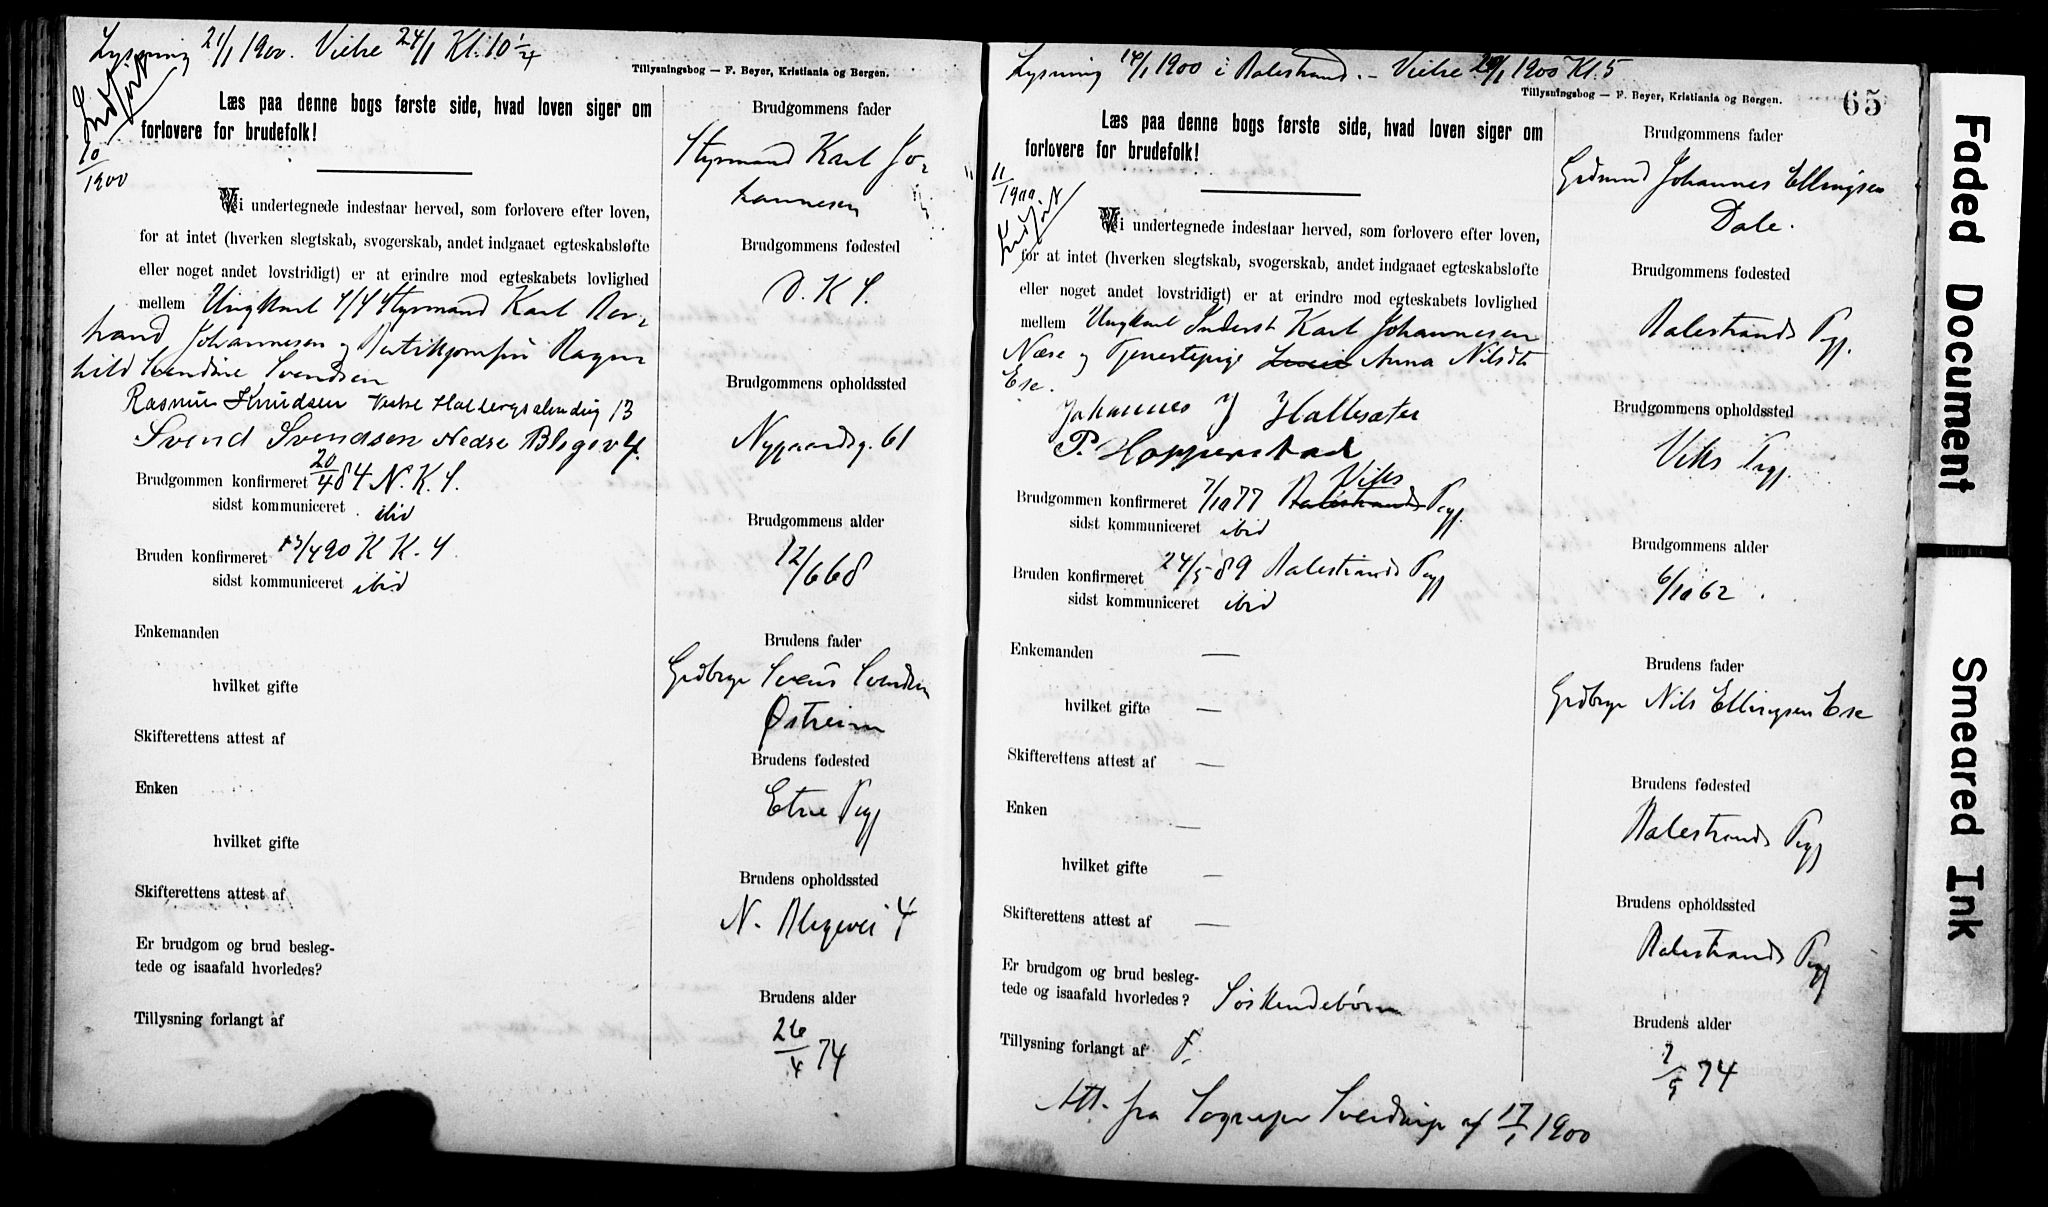 Lysning 21/1 1900. Vielse 24/1 Kl. 10 1/4
Tillysningsbog — F. Beyer, Kristiania og Bergen.
Indført
10/1900
Læs paa denne bogs første side, hvad loven siger om
forlovere for brudefolk!
Vi undertegnede indestaar herved, som forlovere efter loven,
for at intet (hverken slegtskab, svogerskab, andet indgaaet egteskabsløfte
eller noget andet lovstridigt) er at erindre mod egteskabets lovlighed
mellem Ungkarl Styrmand Karl Ber-
hard Johannesen og Ragn-
hild Svendine Svendsen
Rasmus Knudsen Vestre Holbergsalmding 13
Svend Svendsen Nedre Blegev 4.
Brudgommen konfirmeret 20/4 84 N. K. S.
sidst kommuniceret ibid
Bruden konfirmeret 13/4 90 K K. S.
sidst kommuniceret ibid
Enkemanden
hvilket gifte
Skifterettens attest af
Enken
hvilket gifte
Skifterettens attest af
Er brudgom og brud besleg-
tede og isaafald hvorledes?
Tillysning forlangt af
Brudgommens fader
Styrmand Karl Jo-
hannesen
Brudgommens fødested
D. K S.
Brudgommens opholdssted
Nygaardsg. 61
Brudgommens alder
12/6 68
Brudens fader
Grdbrgr Svend Svendsen
Østreim
Brudens fødested
Etne Prgj
Brudens opholdssted
N. Blegevei 4
Brudens alder
26/4 74
Lysning 14/1 1900 i Balestrand. – Vielse 1900 Kl. 5
Tillysningsbog — F. Beyer, Kristiania og Bergen.
65
11/1900.
Indført
Læs paa denne bogs første side, hvad loven siger om
forlovere for brudefolk!
Vi undertegnede indestaar herved, som forlovere efter loven,
for at intet (hverken slegtskab, svogerskab, andet indgaaet egteskabsløfte
eller noget andet lovstridigt) er at erindre mod egteskabets lovlighed
mellem Ungkarl Inderst Karl Johannesen
Næse og Tjenestepige Anna Nilsdt
Ese.
Johannes J Hallesæter
P. Hopperstad
Viks
Brudgommen konfirmeret 7/10 77 Balestrands Prgj.
sidst kommuniceret ibid
Bruden konfirmeret 24/5 89 Balestrands Prgj
sidst kommuniceret ibid
Enkemanden —
hvilket gifte —
Skifterettens attest af —
Enken —
hvilket gifte —
Skifterettens attest af —
Er brudgom og brud besleg-
tede og isaafald hvorledes? Søskendebørn
Tillysning forlangt af F.
Att. fra Sogneprx Sverdrup af 17/1 1900
Brudgommens fader
Grdmnd Johannes Ellingsen
Dale.
Brudgommens fødested
Balestrands Prgj.
Brudgommens opholdssted
Viks Prgj.
Brudgommens alder
6/10 62.
Brudens fader
Grdbrgr Nils Ellingsen Ese
Brudens fødested
Balestrands Prgj
Brudens opholdssted
Balestrands Prgj
Brudens alder
7/9 74
Faded Document
Smeared Ink